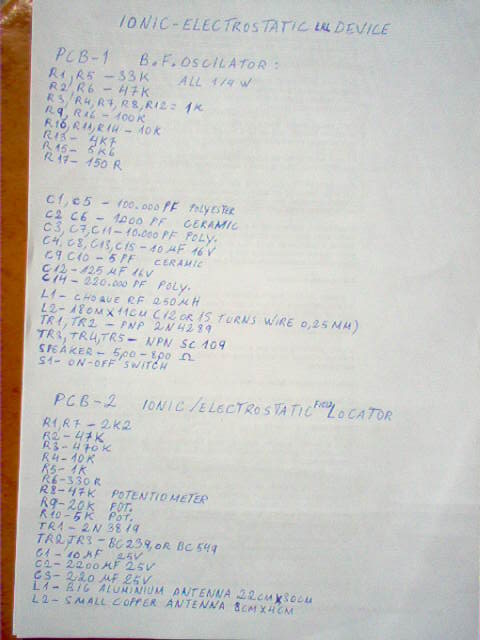 IONIC-ELECTROSTATIC LRL DEVICE
PCB-1 B.F. OSCILATOR:
R1, R5 - 33K ALL 1/4 W
R2, R6 - 47K
R3, R4, R7, R8, R12 = 1K
R9, R16 - 100K
R10, R11, R14 - 10K
R13 - 4K7
R15 - 5K6
R17 - 150 R
C1, C5 - 100.000 PF POLYESTER
C2 C6 - 1200 PF CERAMIC
C3, C7, C11 - 10.000 PF POLY.
C4, C8, C13, C15 - 10 µF 16V
C9 C10 - 5 PF CERAMIC
C12 - 125 µF 16V
C14 - 220.000 PF POLY.
L1 - CHOQUE RF 250µH
L2 - 180M X 11CM (12 OR 15 TURNS WIRE 0,25 MM)
TR1, TR2 - PNP 2N4289
TR3, TR4, TR5 - NPN SC 109
SPEAKER - 500 - 800 Ω
S1 - ON-OFF SWITCH
PCB-2 IONIC/ELECTROSTATIC FIELD LOCATOR
R1, R7 - 2K2
R2 - 47K
R3 - 470K
R4 - 10K
R5 - 1K
R6 - 330 R
R8 - 47K POTENTIOMETER
R9 - 20K POT.
R10 - 5K POT.
TR1 - 2N 3819
TR2, TR3 - BC239, OR BC 549
C1 - 10 µF 25V
C2 - 2200 µF 25V
C3 - 220 µF 25V
L1 - BIG ALUMINIUM ANTENNA 22CM X 30CM
L2 - SMALL COPPER ANTENNA 8CM X 4CM